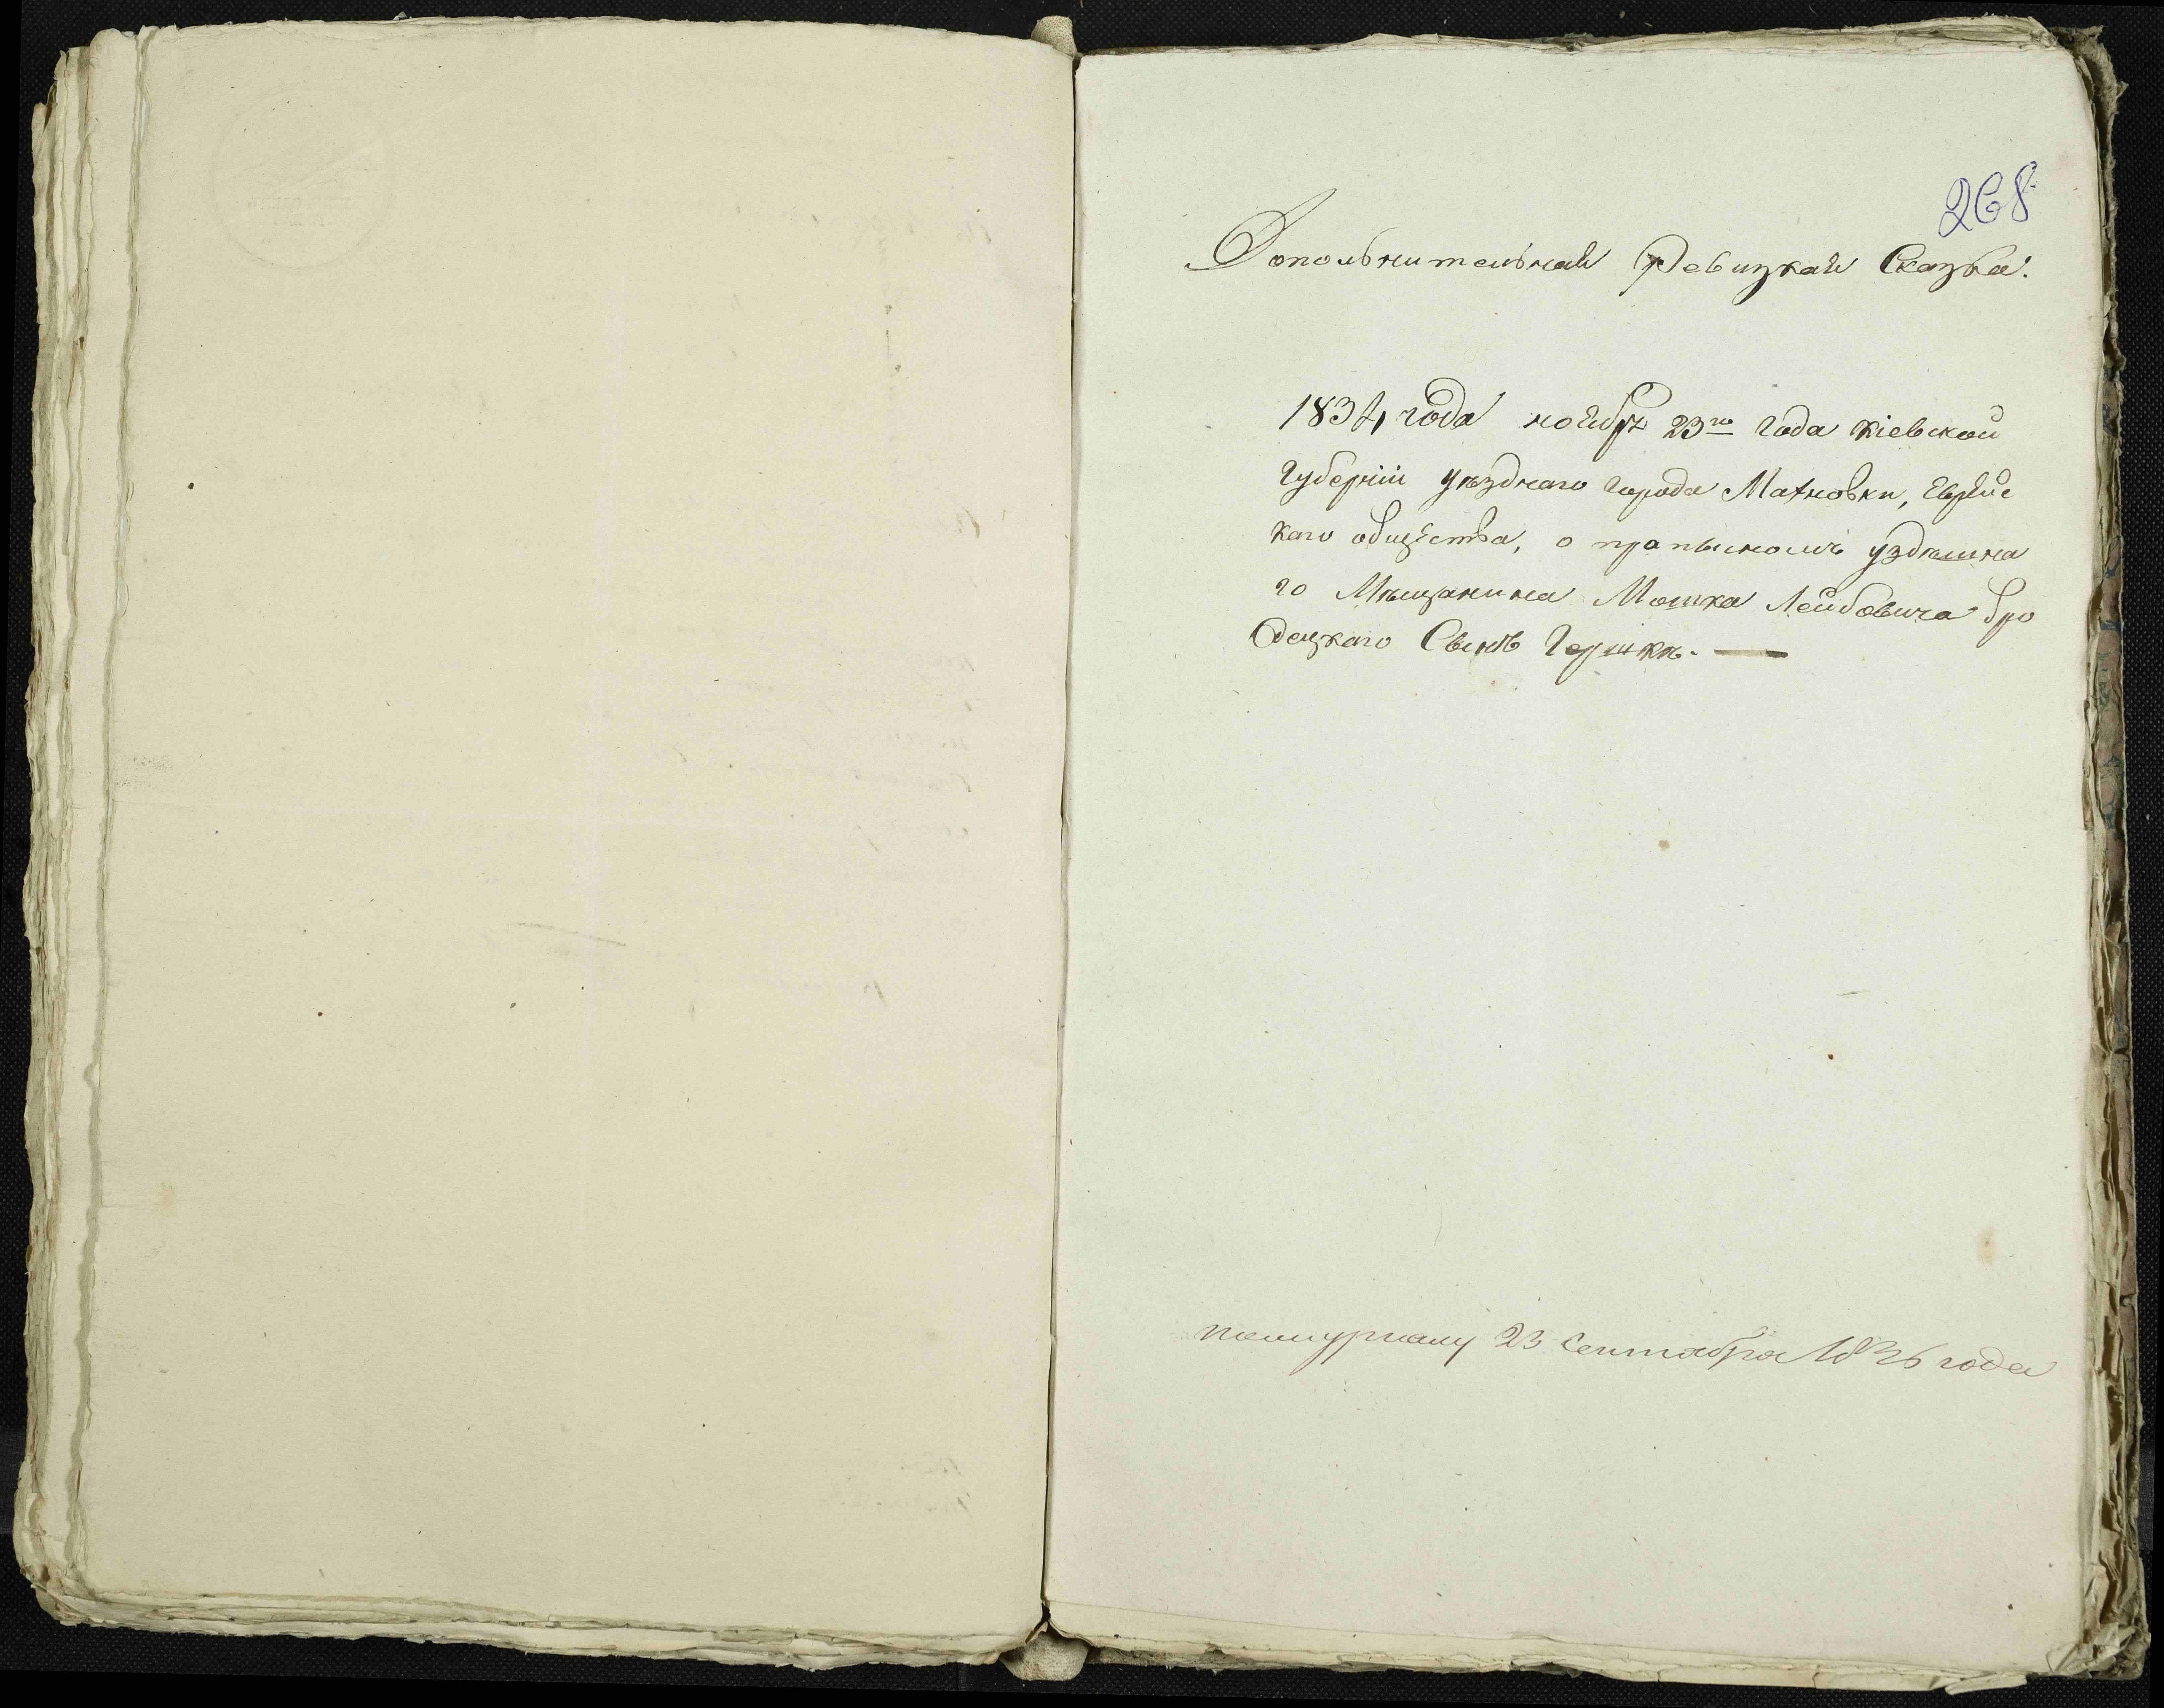 268
Дополнительная Ревизкая Сказка.
1834 года ноября 23го года Кіевской
Губерніи уѣзднаго города Махновки, Еврейс
каго общества, о прапысномъ здѣшна
го Мѣщанина Мошка Лейбовича Бро
децкаго Сынѣ Гершкѣ.
23 Сентября 1836 года